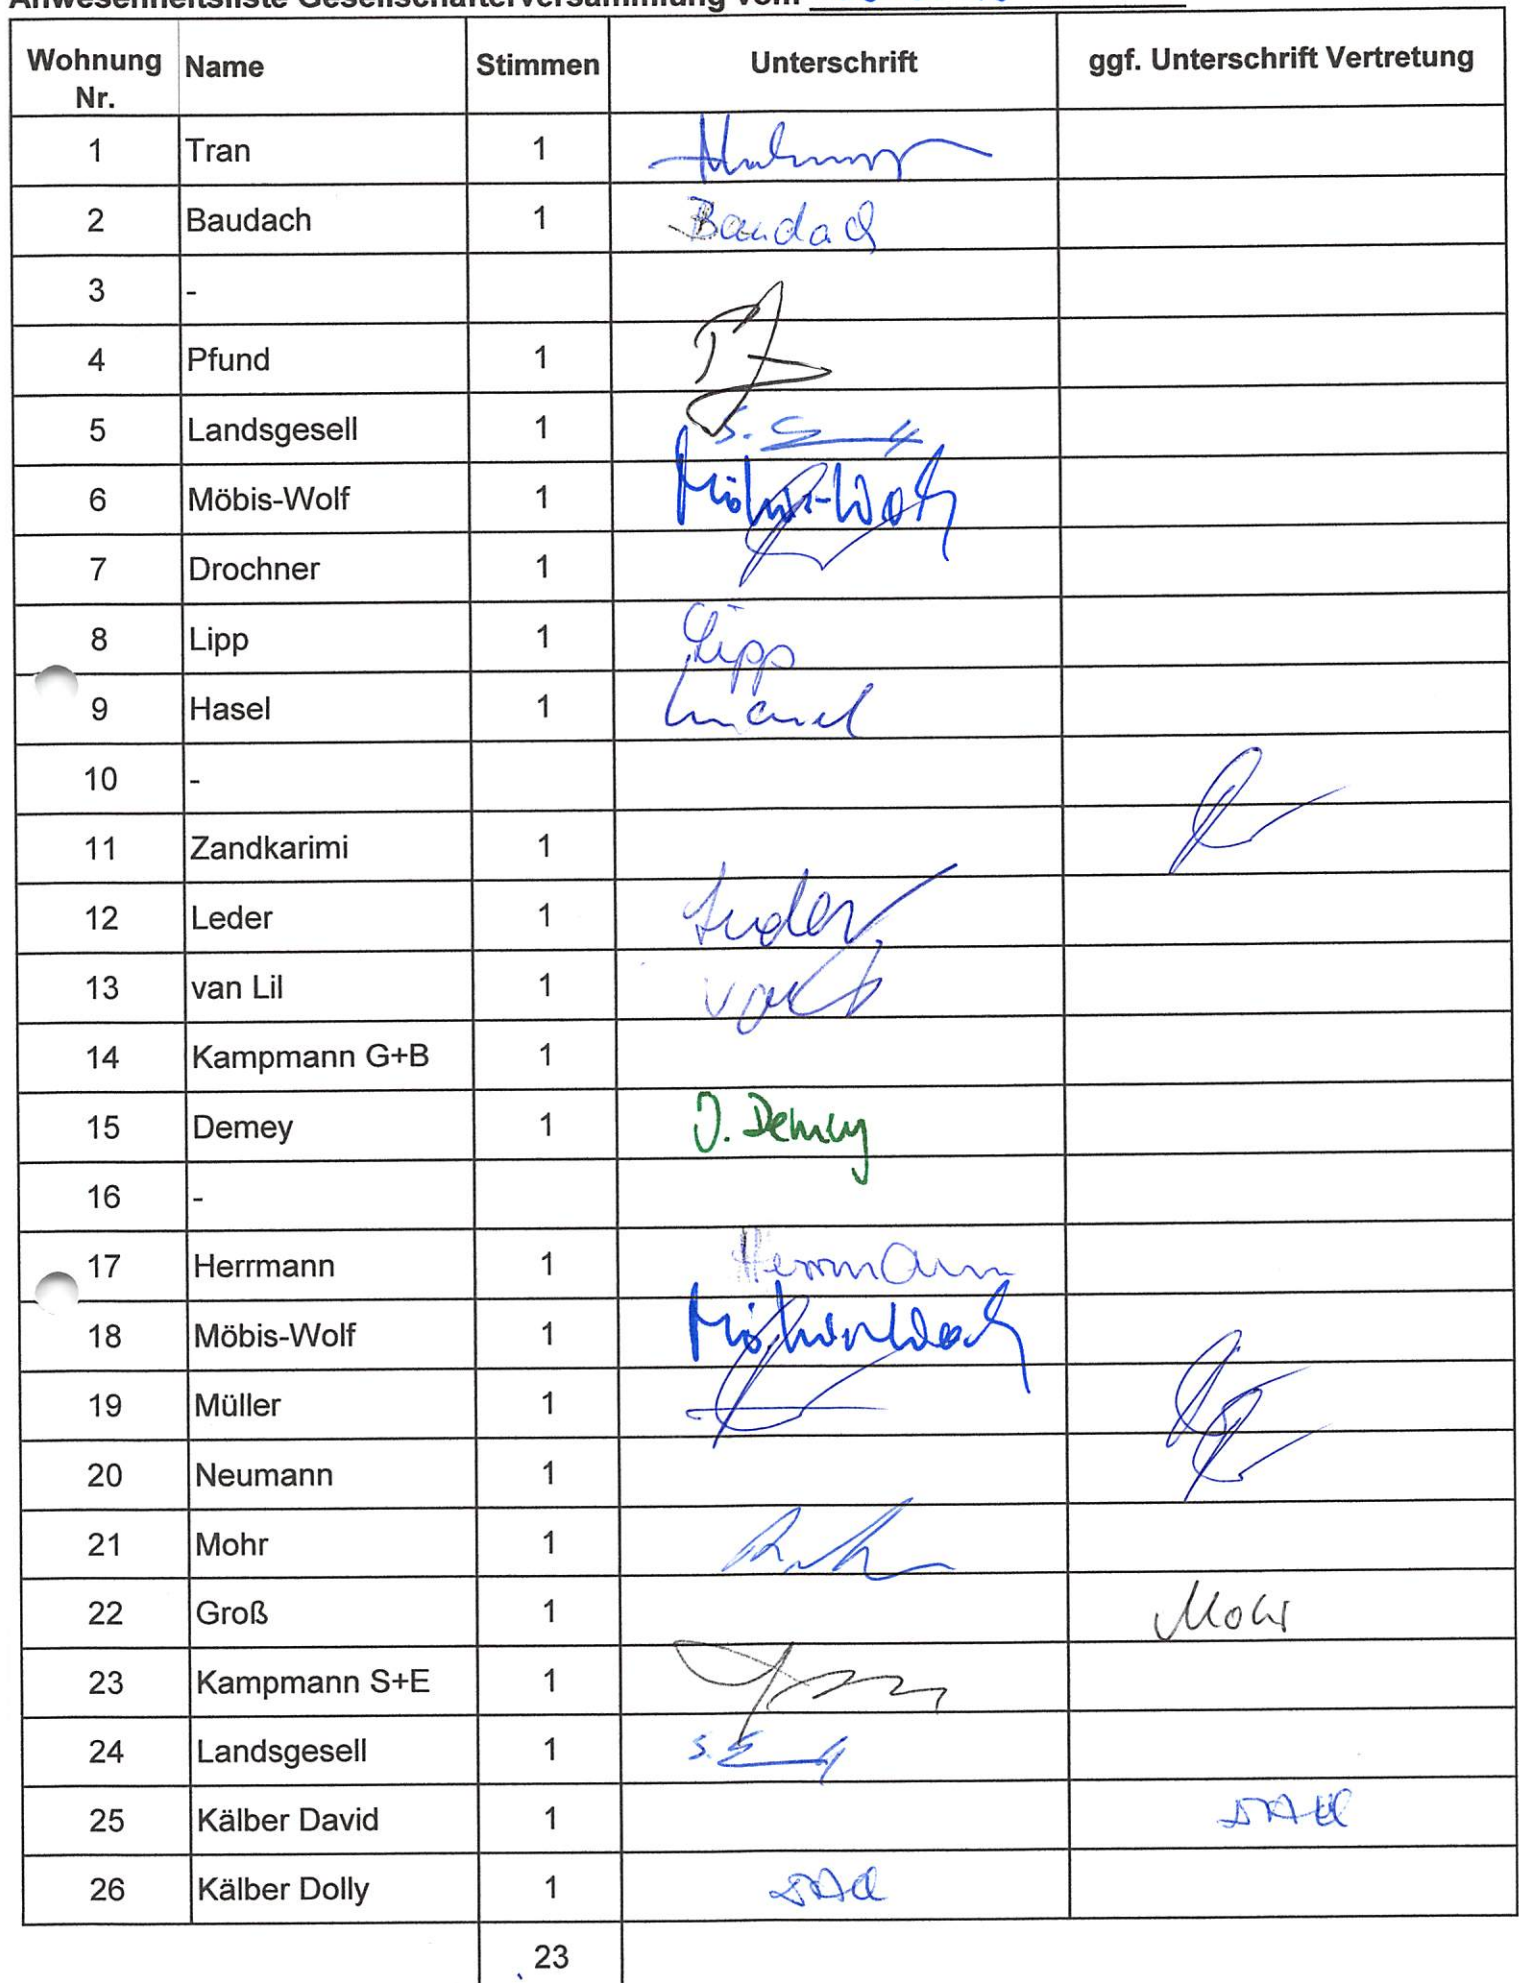 Anwesenheitsliste Gesellschafterversammlung vom
Wohnung Nr. Name Stimmen Unterschrift ggf. Unterschrift Vertretung
1 Tran 1
2 Baudach 1 Baudach
3 -
4 Pfund 1
5 Landsgesell 1
6 Möbis-Wolf 1 Möbis-Wolf
7 Drochner 1
8 Lipp 1 Lipp
9 Hasel 1
10 -
11 Zandkarimi 1
12 Leder 1
13 van Lil 1
14 Kampmann G+B 1
15 Demey 1 J. Demey
16 -
17 Herrmann 1 Herrmann
18 Möbis-Wolf 1
19 Müller 1
20 Neumann 1
21 Mohr 1
22 Groß 1 Mohr
23 Kampmann S+E 1
24 Landsgesell 1
25 Kälber David 1
26 Kälber Dolly 1
23